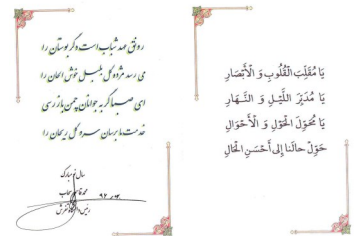 رونق عهد شباب است دگر بوستان را
می رسد مژده گل بلبل خوش الحان را
ای صبا گر به جوانان چمن باز رسی
خدمت ما برسان سرو و گل و ریحان را
سال نو مبارک
محمدقاسم سحاب
رئیس دانشگاه تفرش
یَا مُقَلِّبَ الْقُلُوبِ وَ الْأَبْصَارِ
یَا مُدَبِّرَ اللَّیْلِ وَ النَّهَارِ
یَا مُحَوِّلَ الْحَوْلِ وَ الْأَحْوَالِ
حَوِّلْ حالَنا إِلى أَحْسَنِ الْحَالِ